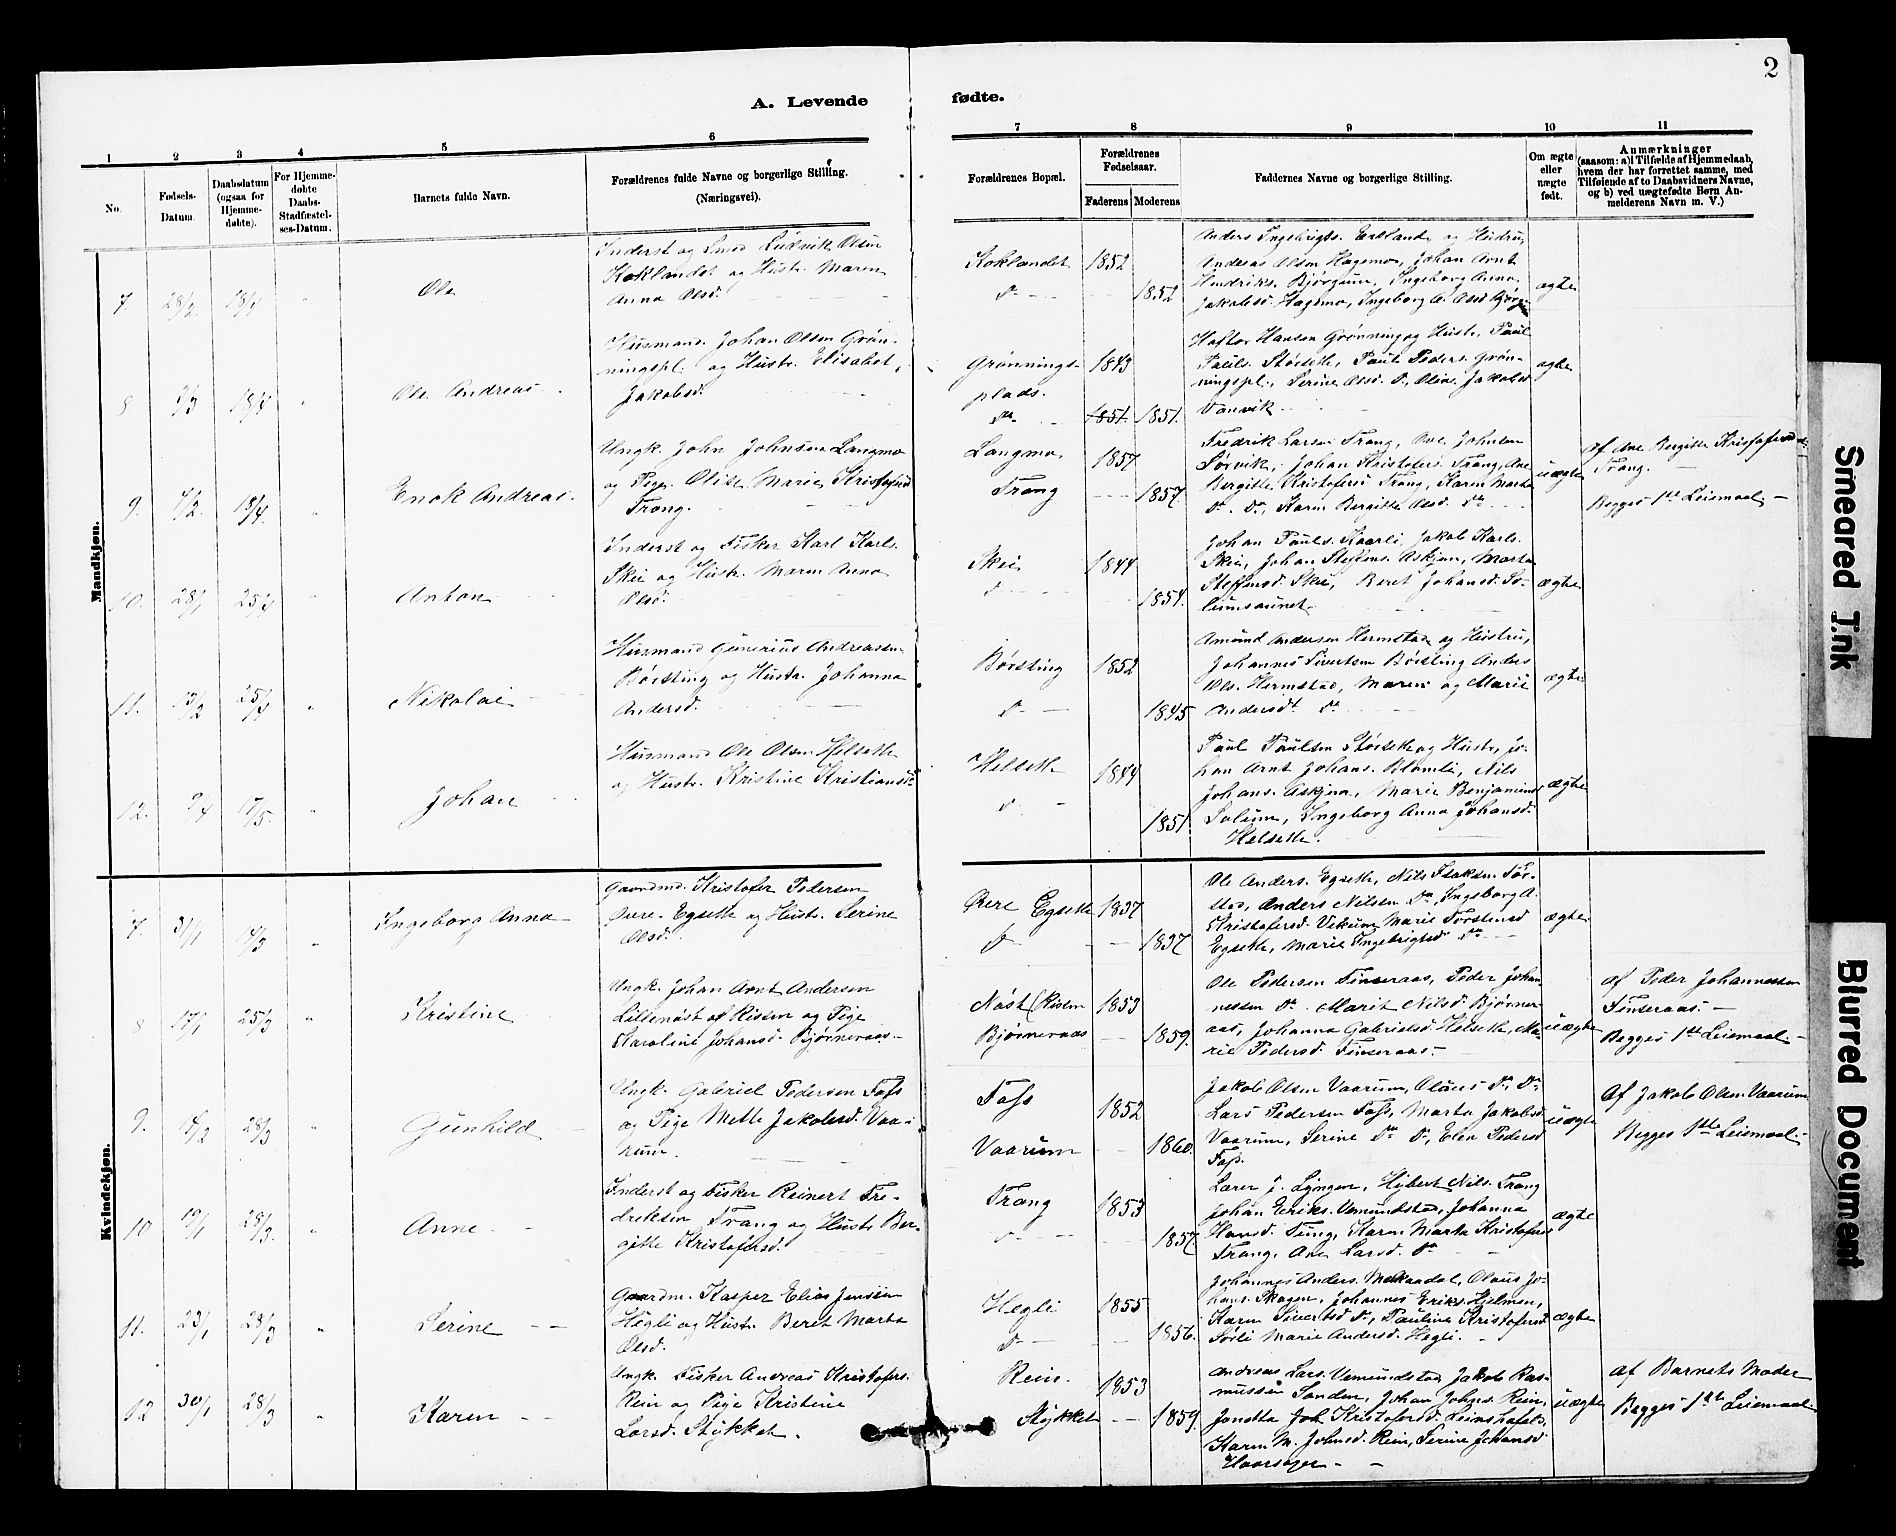 2
A. Levende fødte.
1 2 3 4 5 6 7 8 9 10 11
No.
Fødsels-Datum.
Daabsdatum (ogsaa for Hjemmedøbte).
For Hjemmedøbte Daabs-Stadfæstelses-Datum.
Barnets fulde Navn.
Forældrenes fulde Navne og borgerlige Stilling. (Næringsvei).
Forældrenes Bopæl.
Forældrenes Fødselsaar.
Faderens Moderens
Faddernes Navne og borgerlige Stilling.
Om ægte eller uægte født.
Anmærkninger
(saasom: a) i Tilfælde af Hjemmedaab, hvem der har forrettet samme, med Tilføiende af to Daabsvidners Navne, og b) ved uægtefødte Børn Anmelderens Navn m. V.)
Mandkjøn.
7. 28/2. 18/4 " Ole
Inderst og Smed Ludvik Olsen
Koklandet og Hustr. Maren
Anna Olsd.
Koklandet 1852
Do 1852
Anders Ingebrigts. Erkland og Hustru,
Andreas Olsen Hagemo, Johan Arnt
Hendriks. Bjørgum, Ingeborg Anna
Jakobsd. Hagemo, Ingeborg A. Olsd Bjørg
ægte
8 18/4 " Ole Andreas
Husmand Johan Olsen Grøn-
ningspl. og Hustr. Elisabet
Jakobsd.
Grønnings-
plads. 1843
Do 1851. 1851.
Haftor Hansen Grønning og Hustr., Paul
Pauls. Størseth, Paul Peders. Grøn-
ningspl., Serine Olsd. Do, Oline Jakobsd
Vanvik
ægte
9. 18/4. " Enok Andreas
Ungk. John Johnsen Langmo
og Pige Olise Marie Kristofersd
Trang.
Langmo 1857
Trang 1857.
Fredrik Larsen Trang, Ove Johnsen
Sørvik, Johan Kristofers. Trang, Ane
Bergitte Kristofersd Trang, Karen Marta
Do Do, Karen Bergitte Olsd. Do
uægte
af Ane Bergitte Kristofersd
Trang.
Begges 1ste Leiemaal
10. 28/1 25/4 " Anton
Inderst og Fisker Karl Karls.
Skei og Hustr. Maren Anna
Olsd.
Skei 1844
Do 1854.
Johan Pauls. Kaarli, Jakob Karls.
Skei, Johan Steffens. Askjem, Marta
Steffensd. Skei, Beret Johansd. So-
lumsaunet.
ægte
11. 13/2 25/4 " Nikolai
Husmand Gunerius Andreassen
Børsting og Hustr. Johanna
Andersd.
Børsting 1852
Do 1845
Amund Andersen Hermstad og Hustru,
Johannes Sivertsen Børsting, Anders
Ols. Hermstad, Maren og Marie
Andersdt. Do
ægte
12. 9/4 17/5. " Johan
Husmand Ole Olsen Helseth
og Hustr. Kristine Kristiansd
Helseth 1844
Do 1851
Paul Paulsen Størseth og Hustr., Jo-
han Arnt Johans. Blomli, Nils
Johans. Askjem, Marie Benjaminsd
Solum, Ingeborg Anna Johansd.
Helseth.
ægte
Kvindekjøn.
7. 31/1 14/3 " Ingeborg Anna
Gaardmd. Kristofer Pedersen
Øvre Egseth og Hustr. Serine
Olsd.
Øvre Egseth 1837
Do 1837
Ole Anders. Egseth, Nils Isaksen Tør-
stad, Anders Nilsen Do, Ingeborg A.
Kristofersd. Vikum, Marie Torstensd
Egseth, Marie Ingebrigtsd Do
ægte
8 17/1 25/3 " Kristine
Ungk. Johan Arnt Andersen
Lillenæst af Rissen og Pige
Karoline Johansd. Bjørneraas
Næst (Rissen 1853
Bjørneraas 1859.
Ole Pedersen Finseraas, Peder Johan-
nessen Do. Marit Nilsd. Bjørner-
aas, Johanna Gabrielsd. Helseth, Ma-
rie Pedersd. Finseraas.
uægte
af Peder Johannessen
Finseraas.
Begges 1ste Leiemaal.
9. 14/2 28/3 " Gunhild
Ungk. Gabriel Pedersen Foss
og Pige Mette Jakobsd. Vaa-
rum.
Foss 1852
Vaarum 1860.
Jakob Olsen Vaarum, Olaus Do, Do
Lars Pedersen Foss, Marta Jakobsd
Vaarum, Serine Do Do, Elen Pedersd
Foss.
uægte
af Jakob Olsen Vaarum
Begges 1ste Leiemaal.
10 19/1 28/3. " Anne
Inderst og Fisker Reinert Fre-
driksen Trang og Hustr. Ber-
gitte Kristofersd.
Trang 1853
Do 1857.
Lærer J. Lyngen, Hybert Nils. Trang
Johan Eriks. Vemundstad, Johanna
Hansd. Tung, Karen Marta Kristofersd
Trang, Ane Larsd. Do
ægte
11. 23/1 28/3 " Serine
Gaardm. Kasper Elias Jensen
Hegli og Hustr. Beret Marta
Olsd.
Hegli 1855
Do 1856.
Johannes Anders. Mekaadal, Olaus Jo-
hans. Skogen, Johannes Eriks. Hjelmen,
Karen Sivertsd Do, Pauline Kristofersd
Sørli Marie Andersd. Hegli.
ægte
12 30/1 28/3 " Karen
Ungk. Fisker Andreas Kristofers.
Rein og Pige Kristine
Larsd. Stykket.
Rein. 1853
Stykket 1859.
Andreas Lars. Vemundstad, Jakob Ras-
mussen Sanden, Johan Johns. Rein,
Jonetta Joh. Kristofersd. Leinshafeli,
Karen M. Johnsd. Rein, Serine Johansd
Haarsager
uægte
af Barnets Moder
Begges 1ste Leiemaal
Smeared Ink
Blurred Document